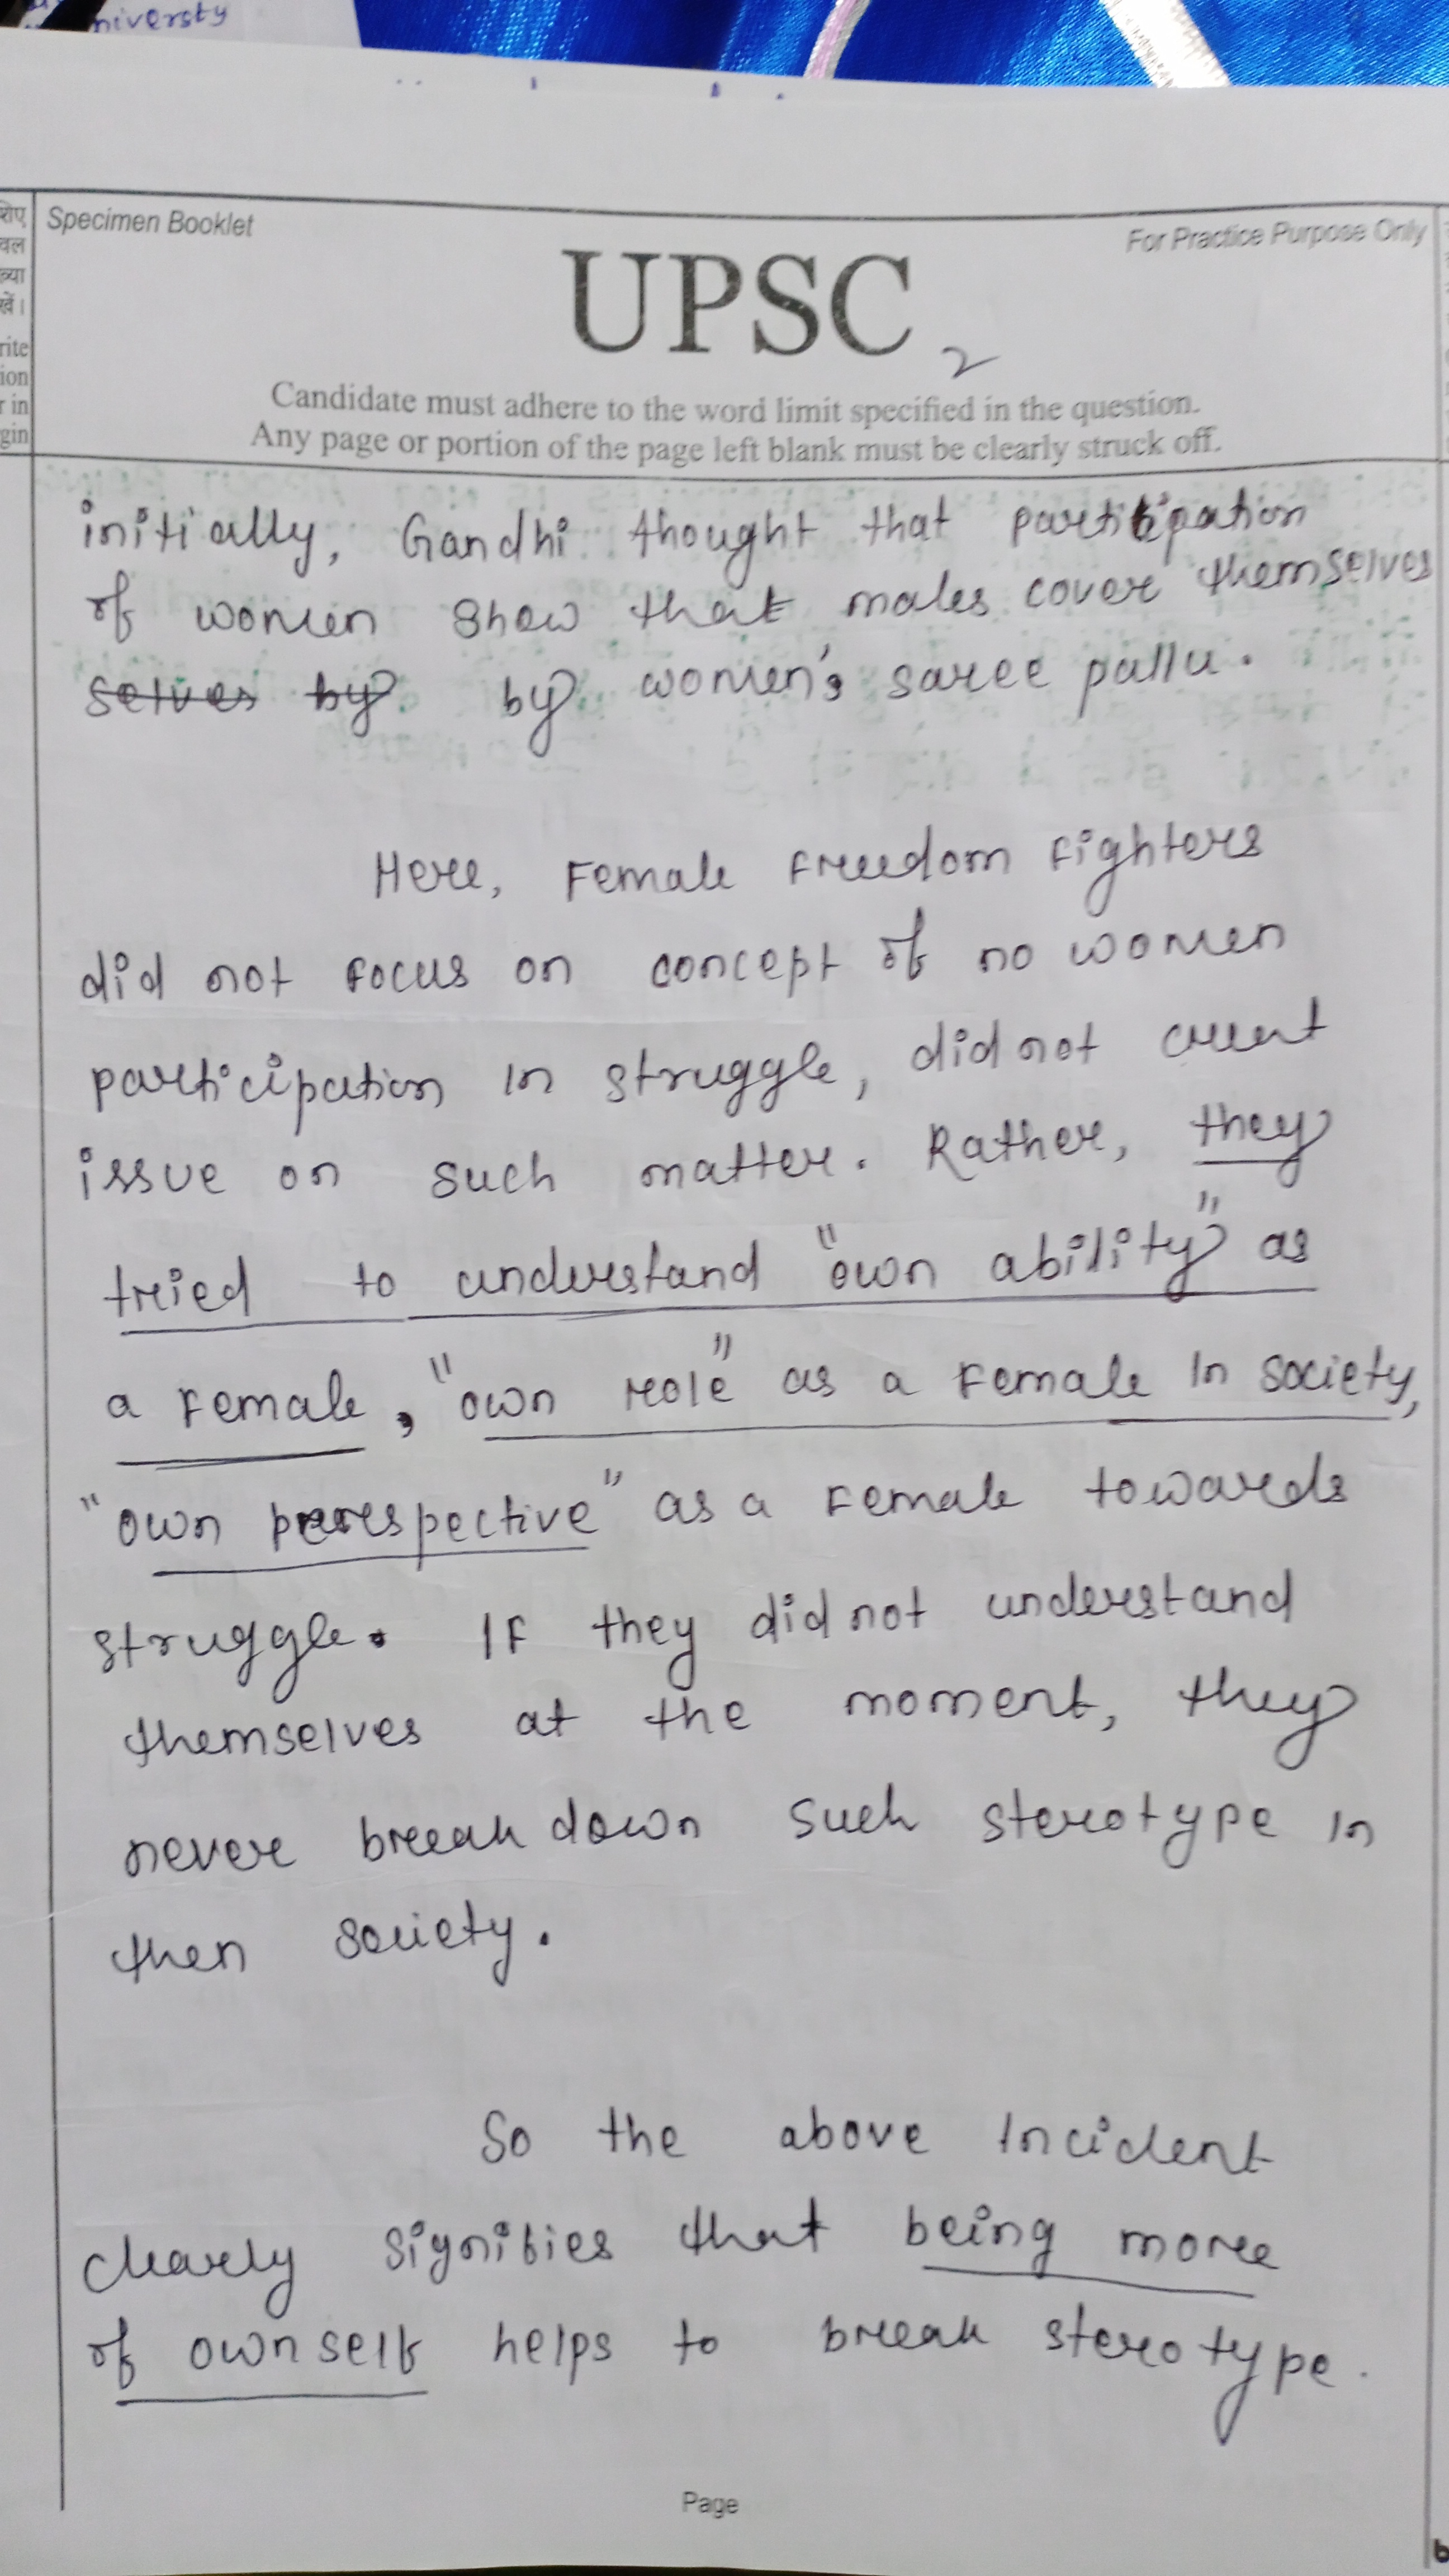 niversty
शेए
वल
ख्या
खें।
rite
ion
r in
gin
Specimen Booklet
For Practice Purpose Only
UPSC
2
Candidate must adhere to the word limit specified in the question.
Any page or portion of the page left blank must be clearly struck off.
initially, Gandhi thought that participation
of women show that males cover themselves
selves by by women's saree pallu.
Here, Female Freedom Fighters
did not Focus on concept of no women
participation in struggle, did not creat
issue on such matter. Rather, they
tried to understand "own ability" as
a Female, "own role" as a Female in society,
"own perespective" as a Female towards
struggle. IF they did not understand
themselves at the moment, they
never break down such sterotype in
then society.
So the above Incident
clearly signifies that being more
of ownself helps to break sterotype.
Page